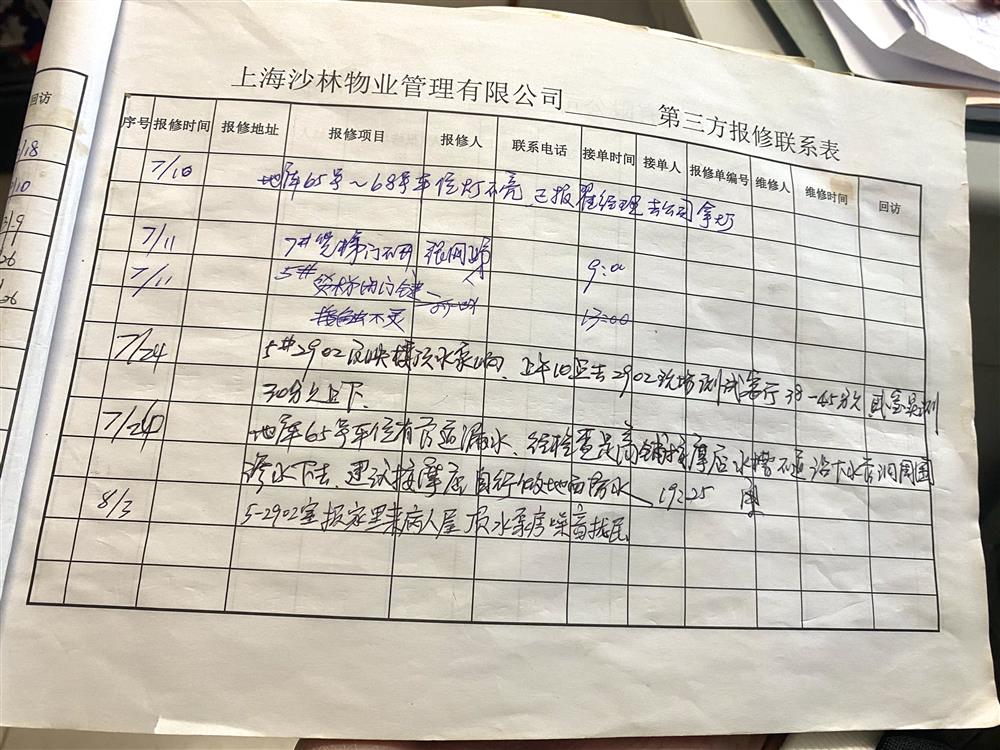 上海沙林物业管理有限公司______第三方报修联系表
序号 报修时间 报修地址 报修项目 报修人 联系电话 接单时间 接单人 报修单编号 维修人 维修时间 回访
7/10 地库65号~68号车位灯不亮 已报 经理去公司拿灯
7/11 7# 梯门不开 9:00
7/11 5# 梯内门
不灵 13:00
7/24 5#2902反映楼顶水泵响、上午10点去2902现场测试客厅38-45分贝
30分贝上下.
7/26 地库65号车位有 漏水、经检查是商铺按摩店水槽 下水 周围
渗水下去、建议按摩店自行做地面防水 19:25
8/3 5-2902室报家里来病人屋顶水泵房噪音扰民
回访